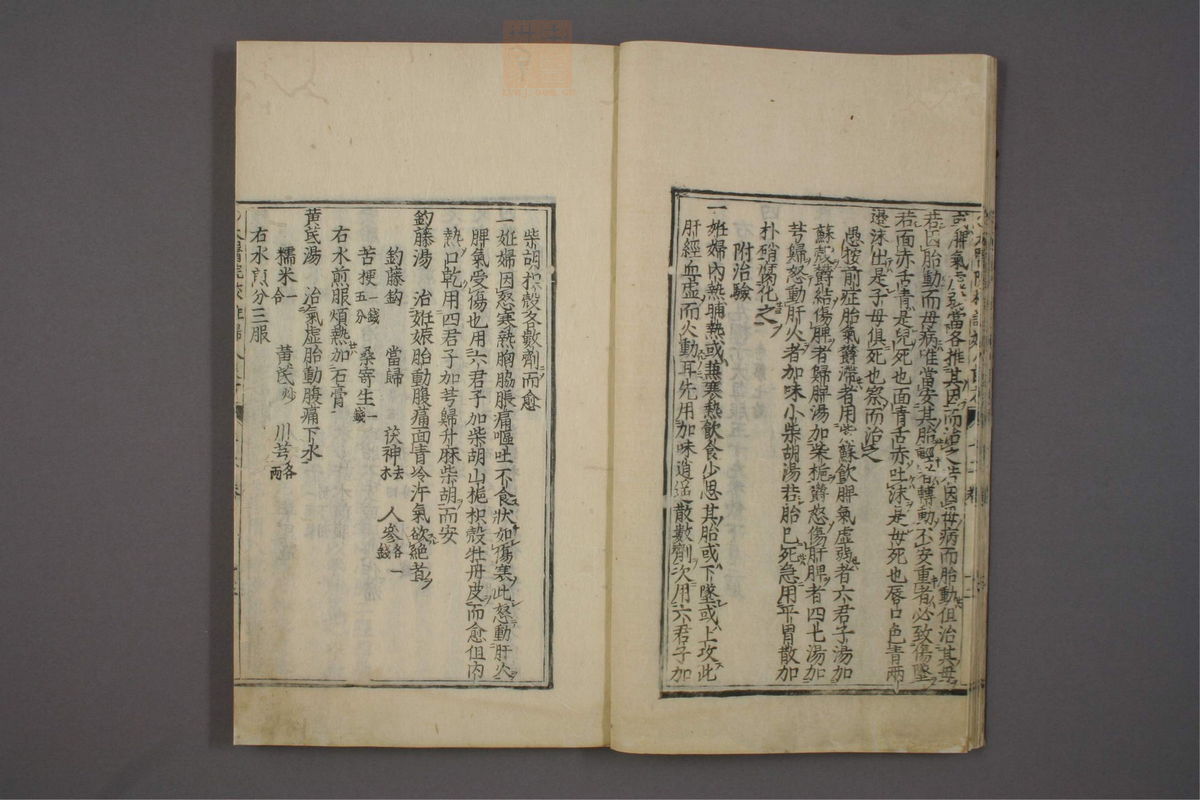 或脾氣虛弱當各推其因而治之若因母病而胎動但治其母
若因胎動而母病唯當安其胎輕者轉動不安重者必致傷墜
若面赤舌青是兒死也面青舌赤吐沫是母死也唇口色青兩
邊沫出是子母俱死也察而治之
愚按前症胎氣鬱滯者用紫蘇飲脾氣虛弱者六君子湯加
蘇殼鬱結傷脾者歸脾湯加柴梔鬱怒傷肝脾者四七湯加
芎歸怒動肝火者加味小柴胡湯若胎已死急用平胃散加
朴硝腐化之
附治驗
一姙婦內熱晡熱或兼寒熱飲食少思其胎或下墜或上攻此
肝經血虛而火動耳先用加味逍遙散數劑次用六君子加
柴胡枳殼各數劑而愈
一姙婦因怒寒熱胸脇脹痛嘔吐不食狀如傷寒此怒動肝火
脾氣受傷也用六君子加柴胡山梔枳殼牡丹皮而愈但內
熱口乾用四君子加芎歸升麻柴胡而安
鈎藤湯 治姙娠胎動腹痛面青冷汗氣欲絕者
鈎藤鈎 當歸 茯神去木 人參各一錢
苦梗一錢五分 桑寄生一錢
右水煎服煩熱加石膏
黄芪湯 治氣虛胎動腹痛下水
糯米一合 黄芪炒 川芎各一兩
右水煎分三服